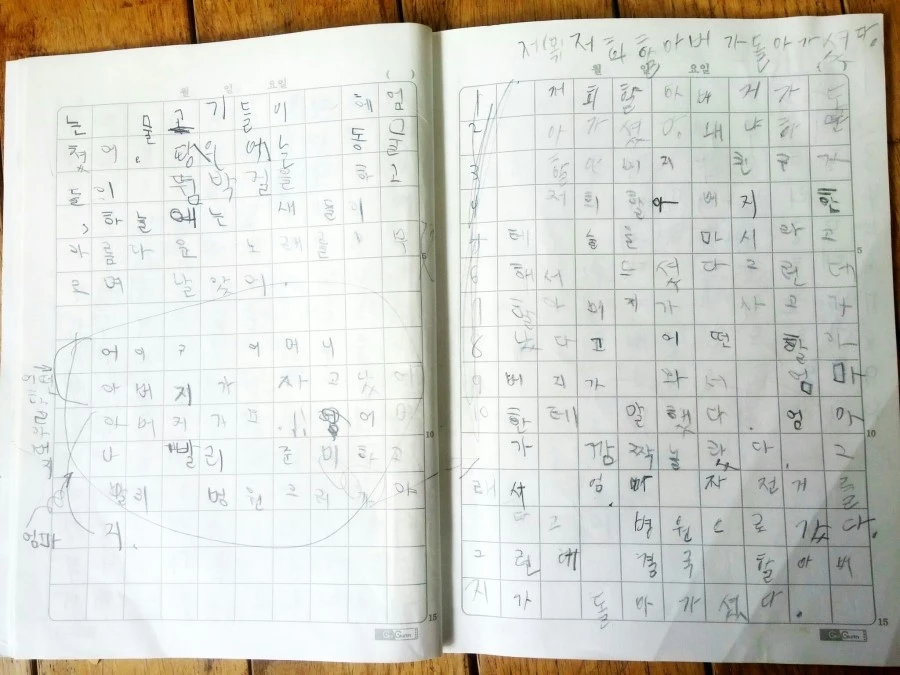 월 일 요일 ( )
는 물고기들이 헤엄
쳤어. 땅위에는 동물
들의 뜀박질 하고
, 하늘 위는 새들이
아름다운 노래를 부
르며 날았어.
어이구 어머니
아버지가 자고 났어
아버지가
다 빨리 준비하고
빨리 병원으로 가야
지.
엄마
5
10
15
제목 저희 할아버지가 돌아가셨다.
월 일 요일
1 저희 할아버지가 돌
2 아가셨다. 왜냐하
3 할아버지 친구
저희 할아버지 한
테 술을 마시라고
6 해서 드셨다 그런데
7 할아버지가 자고 나
8 났다고 어떤 할아
9 버지가 와서 엄마
10 한테 말했다. 엄마
가 깜짝 놀랐다. 그
래서 엄마 자전거를
타고 병원으로 갔다.
그런데 결국 할아버
지가 돌아가셨다.
5
10
15